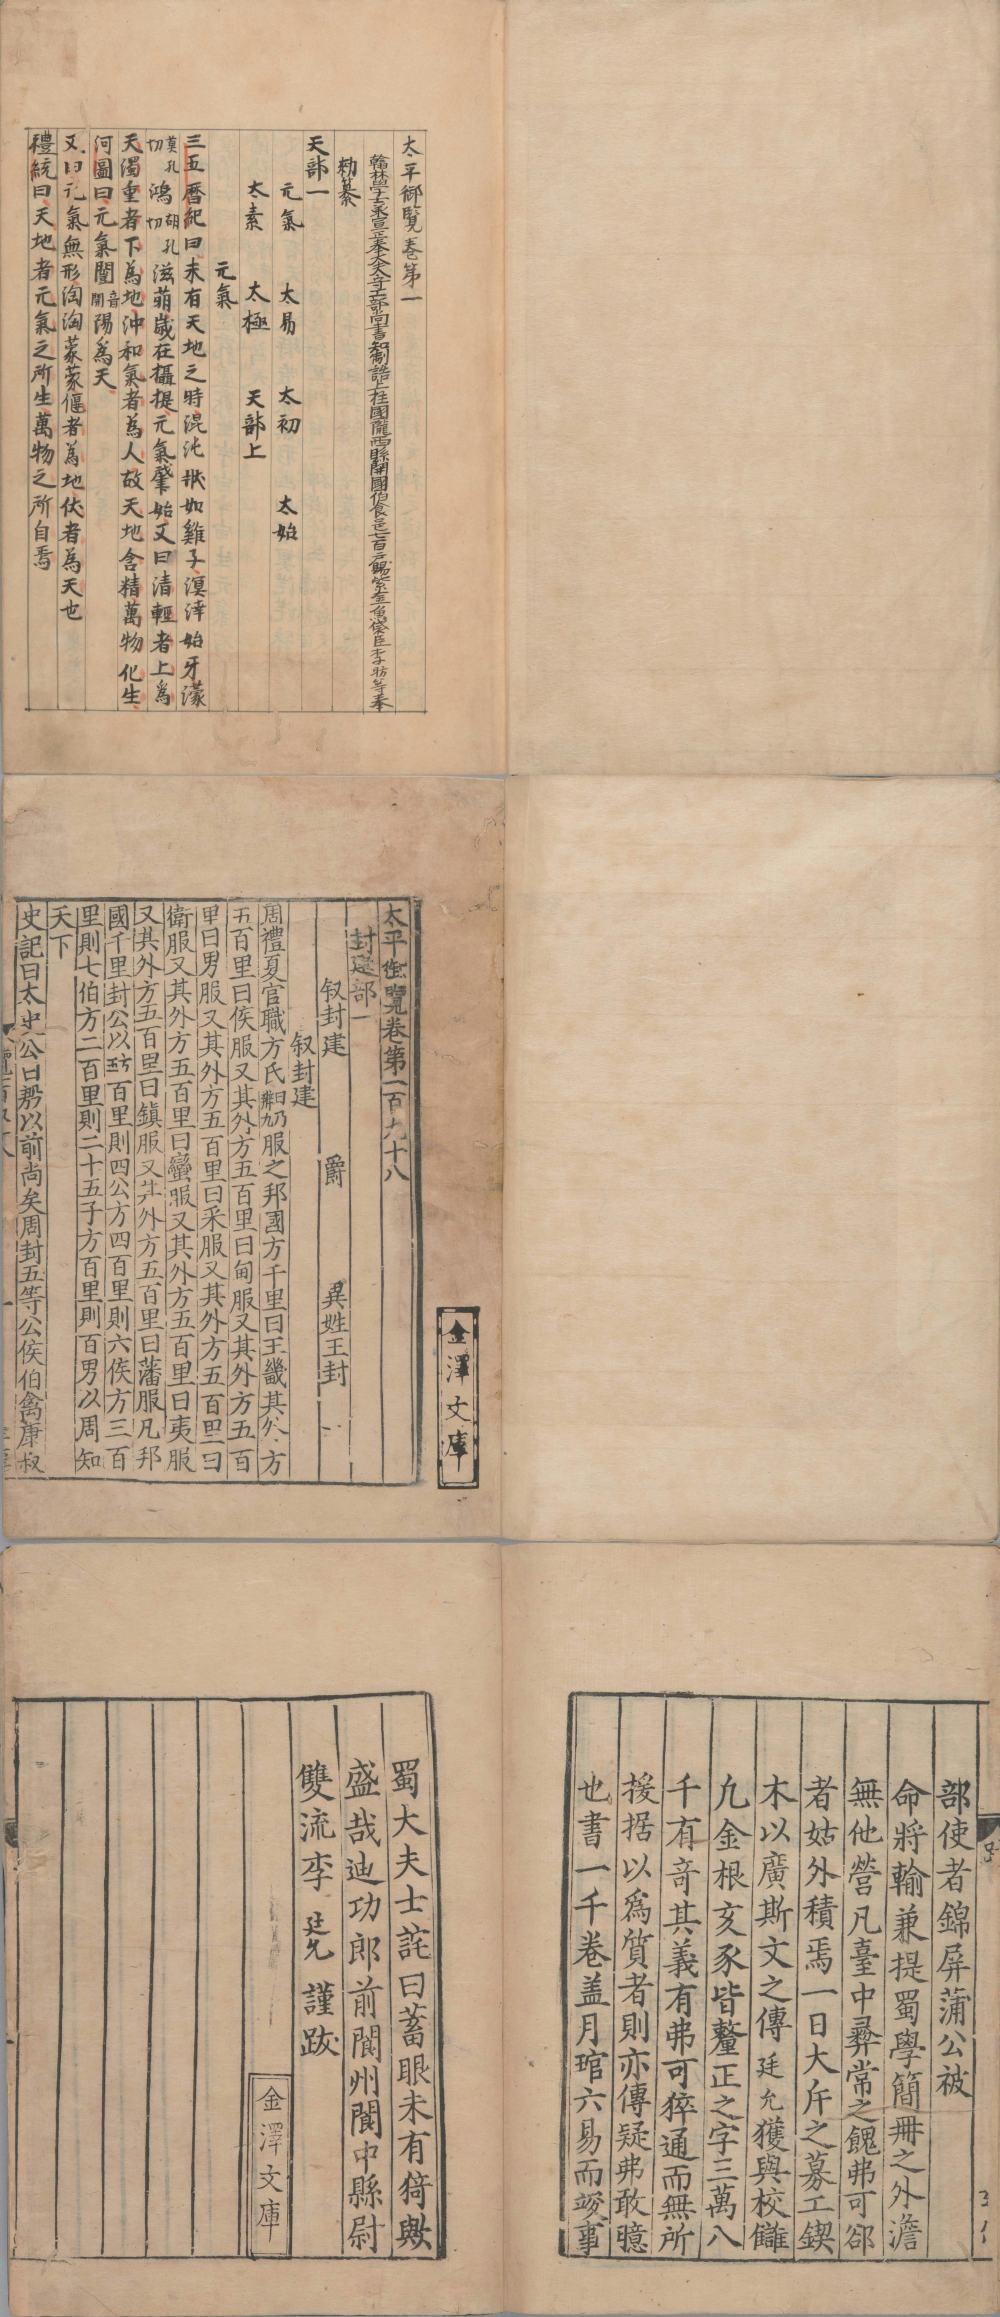 太平御覽卷第一
翰林學士承宣正奉大夫守工部尚書知制誥上柱國隴西縣開國伯食邑七百户賜紫金魚袋臣李昉等奉
勑纂
天部一
元氣 太易 太初 太始
太素 太極 天部上
元氣
三五曆紀曰未有天地之時混沌狀如雞子溟涬始牙濛
莫孔切鴻胡孔切滋萌歲在攝提元氣肇始又曰清輕者上爲
天濁重者下爲地沖和氣者爲人故天地含精萬物化生
河圖曰元氣闓音開陽爲天
又曰元氣無形洶洶蒙蒙偃者爲地伏者爲天也
禮統曰天地者元氣之所生萬物之所自焉
太平御覽卷第一百九十八
封建部一
叙封建 爵 異姓王封
叙封建
周禮夏官職方氏曰乃辨九服之邦國方千里曰王畿其外方
五百里曰侯服又其外方五百里曰甸服又其外方五百
里曰男服又其外方五百里曰采服又其外方五百里曰
衛服又其外方五百里曰蠻服又其外方五百里曰夷服
又其外方五百里曰鎮服又其外方五百里曰藩服凡邦
國千里封公以方五百里則四公方四百里則六侯方三百
里則七伯方二百里則二十五子方百里則百男以周知
天下
史記曰太史公曰殷以前尚矣周封五等公侯伯禽康叔
金澤文庫
部使者錦屏蒲公被
命將輸兼提蜀學簡冊之外澹
無他營凡臺中彝常之餽弗可郤
者姑外積焉一日大斥之募工鍥
木以廣斯文之傳廷允獲與校讎
九金根亥豕皆釐正之字三萬八
千有奇其義有弗可猝通而無所
援据以爲質者則亦傳疑弗敢臆
也書一千卷盖月琯六易而竣事
蜀大夫士詫曰蓄眼未有猗歟
盛哉迪功郎前閬州閬中縣尉
雙流李廷允謹跋
金澤文庫